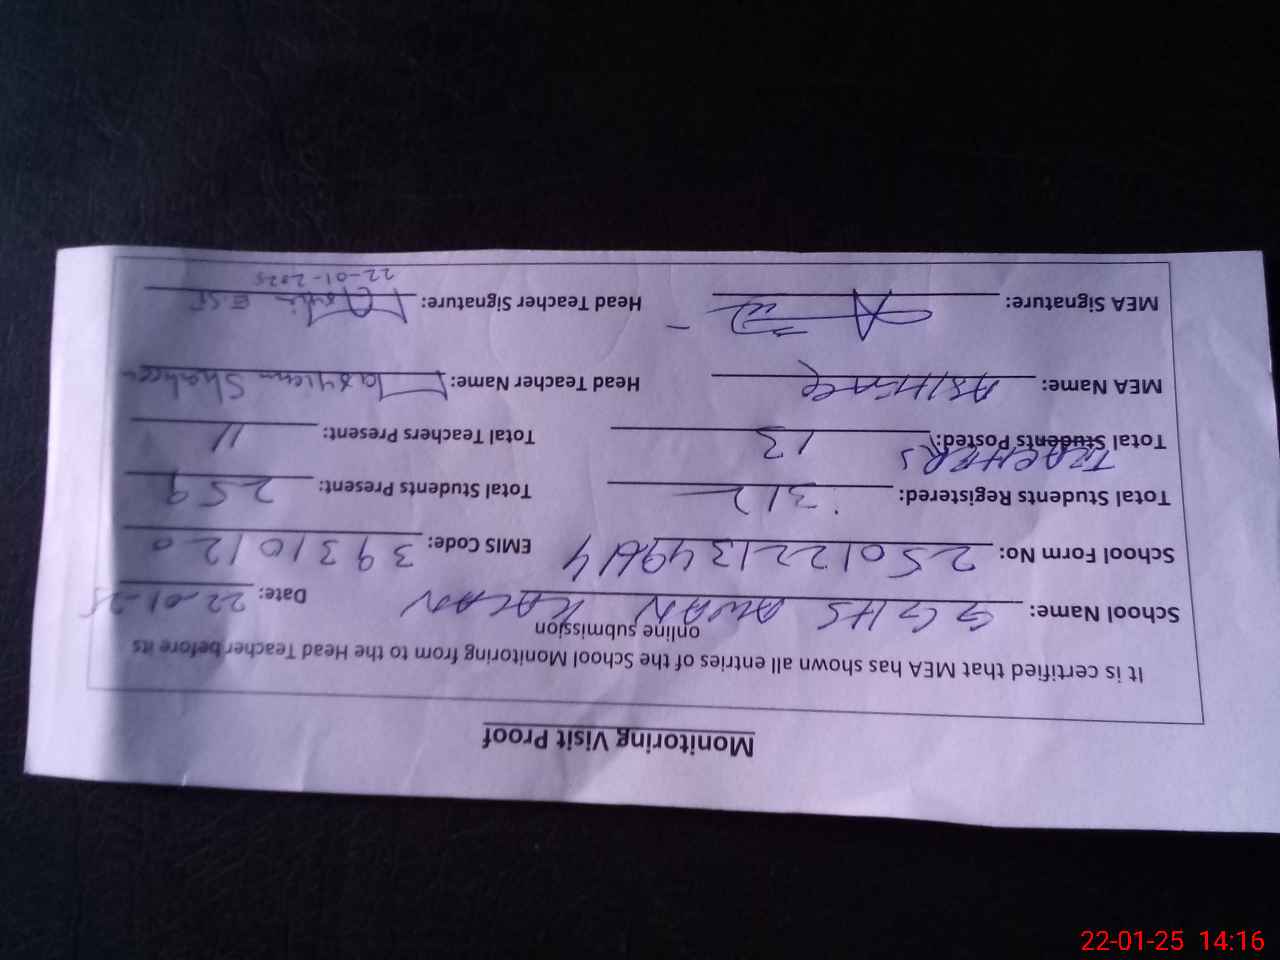 Monitoring Visit Proof
It is certified that MEA has shown all entries of the School Monitoring from to the Head Teacher before its
online submission
School Name: GGHS AWAN KALAN Date: 22-01-25
School Form No: 250122134964 EMIS Code: 39310120
Total Students Registered: 312 Total Students Present: 259
TEACHERS
Total Students Posted: 13 Total Teachers Present: 11
MEA Name: Head Teacher Name: Shaheen
MEA Signature: Head Teacher Signature: E.ST
22-01-2025
22-01-25 14:16